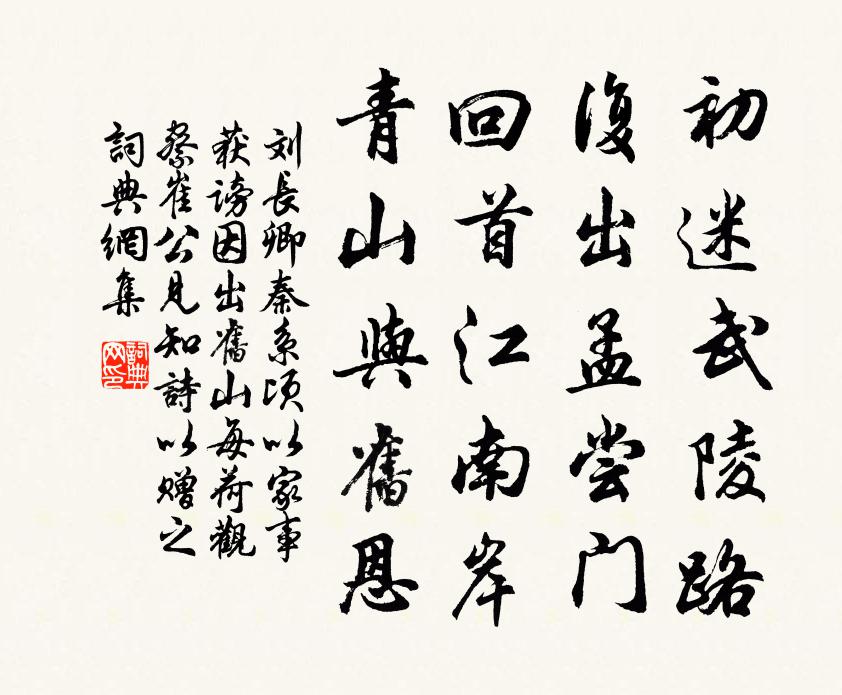 初迷武陵路
復出孟尝门
回首江南岸
青山與舊恩
刘長卿秦系頃以家事
获謗因出舊山每荷觀
察崔公見知詩以赠之
詞典網集
詞典网印